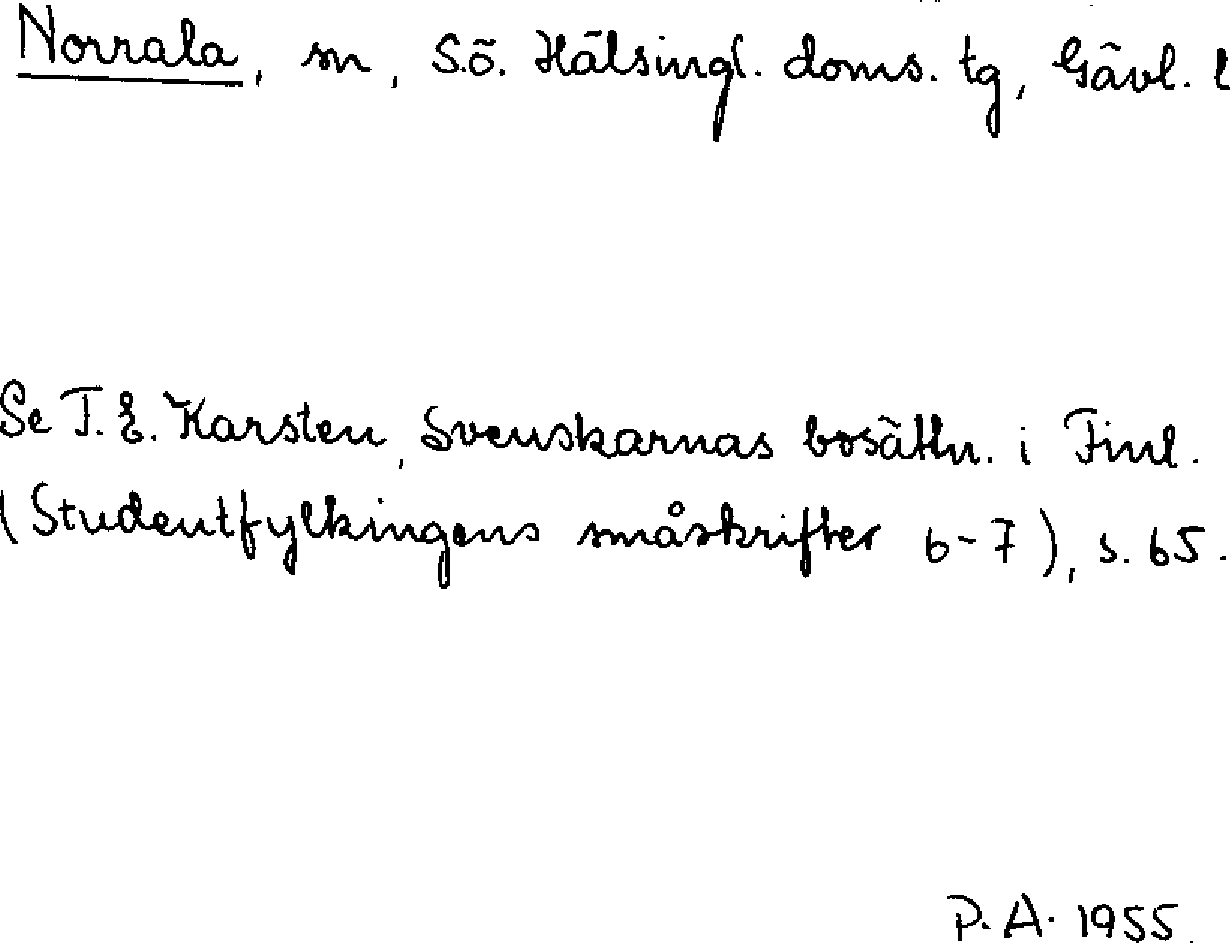 Norrala, sn, S.ö. Hälsingl. doms. tg, Gävl. l
Se T. E. Karsten, Svenskarnas bosättn. i Finl.
(Studentfylkingens småskrifter 6-7), s. 65.
P. A. 1955.